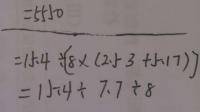 =5550
=15.4÷[8×(2.53+5.17)]
=15.4÷7.7÷8